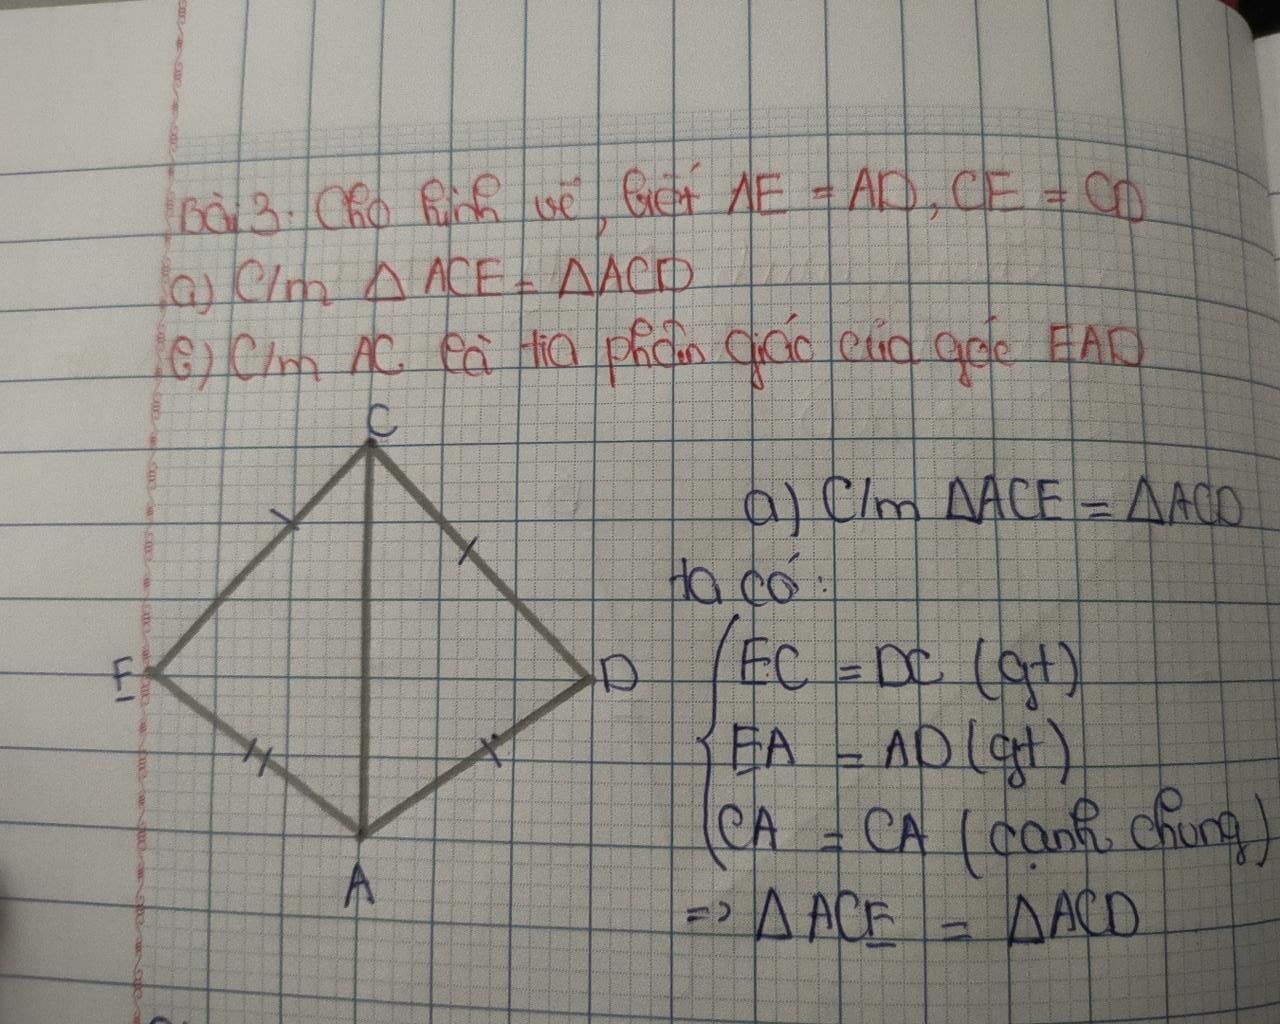 Bài 3. Cho hình vẽ, biết AE = AD, CE = CD
a) C/m Δ ACE = ΔACD
b) C/m AC là tia phân giác của góc EAD
C
E
D
A
a) C/m ΔACE = ΔACD
ta có:
EC = DC (gt)
EA = AD (gt)
CA = CA (cạnh chung)
=> ΔACE = ΔACD